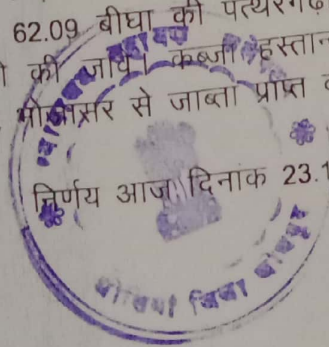 62.09 बीघा की पत्थरगढ़
की जावे। कब्जा हस्तान
से जाब्ता प्राप्त
निर्णय आज दिनांक 23.1
ओसियां जिला जोधपुर